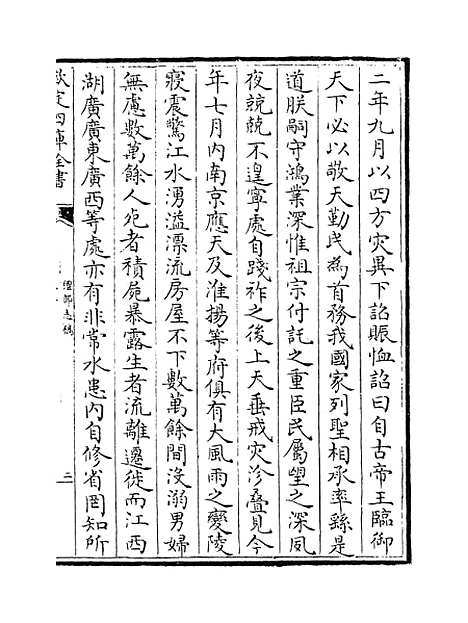 二年九月以四方灾異下詔賑恤詔曰自古帝王臨御
天下必以敬天勤民為首務我國家列聖相承率繇是
道朕嗣守鴻業深惟祖宗付託之重臣民屬望之深夙
夜兢兢不遑寧處自踐祚之後上天垂戒灾沴叠見今
年七月内南京應天及淮揚等府俱有大風雨之變陵
寢震驚江水湧溢漂流房屋不下數萬餘間没溺男婦
無慮數萬餘人死者積屍暴露生者流離遷徙而江西
湖廣廣東廣西等處亦有非常水患内自修省罔知所
欽定四庫全書
禮部志稿
二